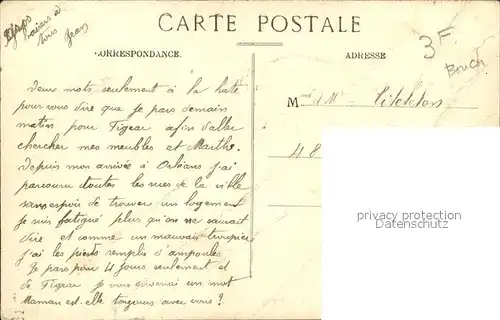 CARTE POSTALE
baisers à
tous Jean
3F
Bouch
CORRESPONDANCE.
ADRESSE
Deux mots seulement à la hate
pour vous dire que je pars demain
matin pour Figeac afin d'aller
chercher mes meubles et Marthe.
Depuis mon arrivée à Orléans j'ai
parcouru toutes les rues de la ville
sans espoir de trouver un logement
je suis fatigué plus qu'on ne saurait
dire et comme un mauvais troupier
j'ai les pieds remplis d'ampoules
Je pars pour 4 jours seulement et
de Figeac je vous enverrai un mot
Maman est-elle toujours avec vous?
M
48
privacy protection
Datenschutz